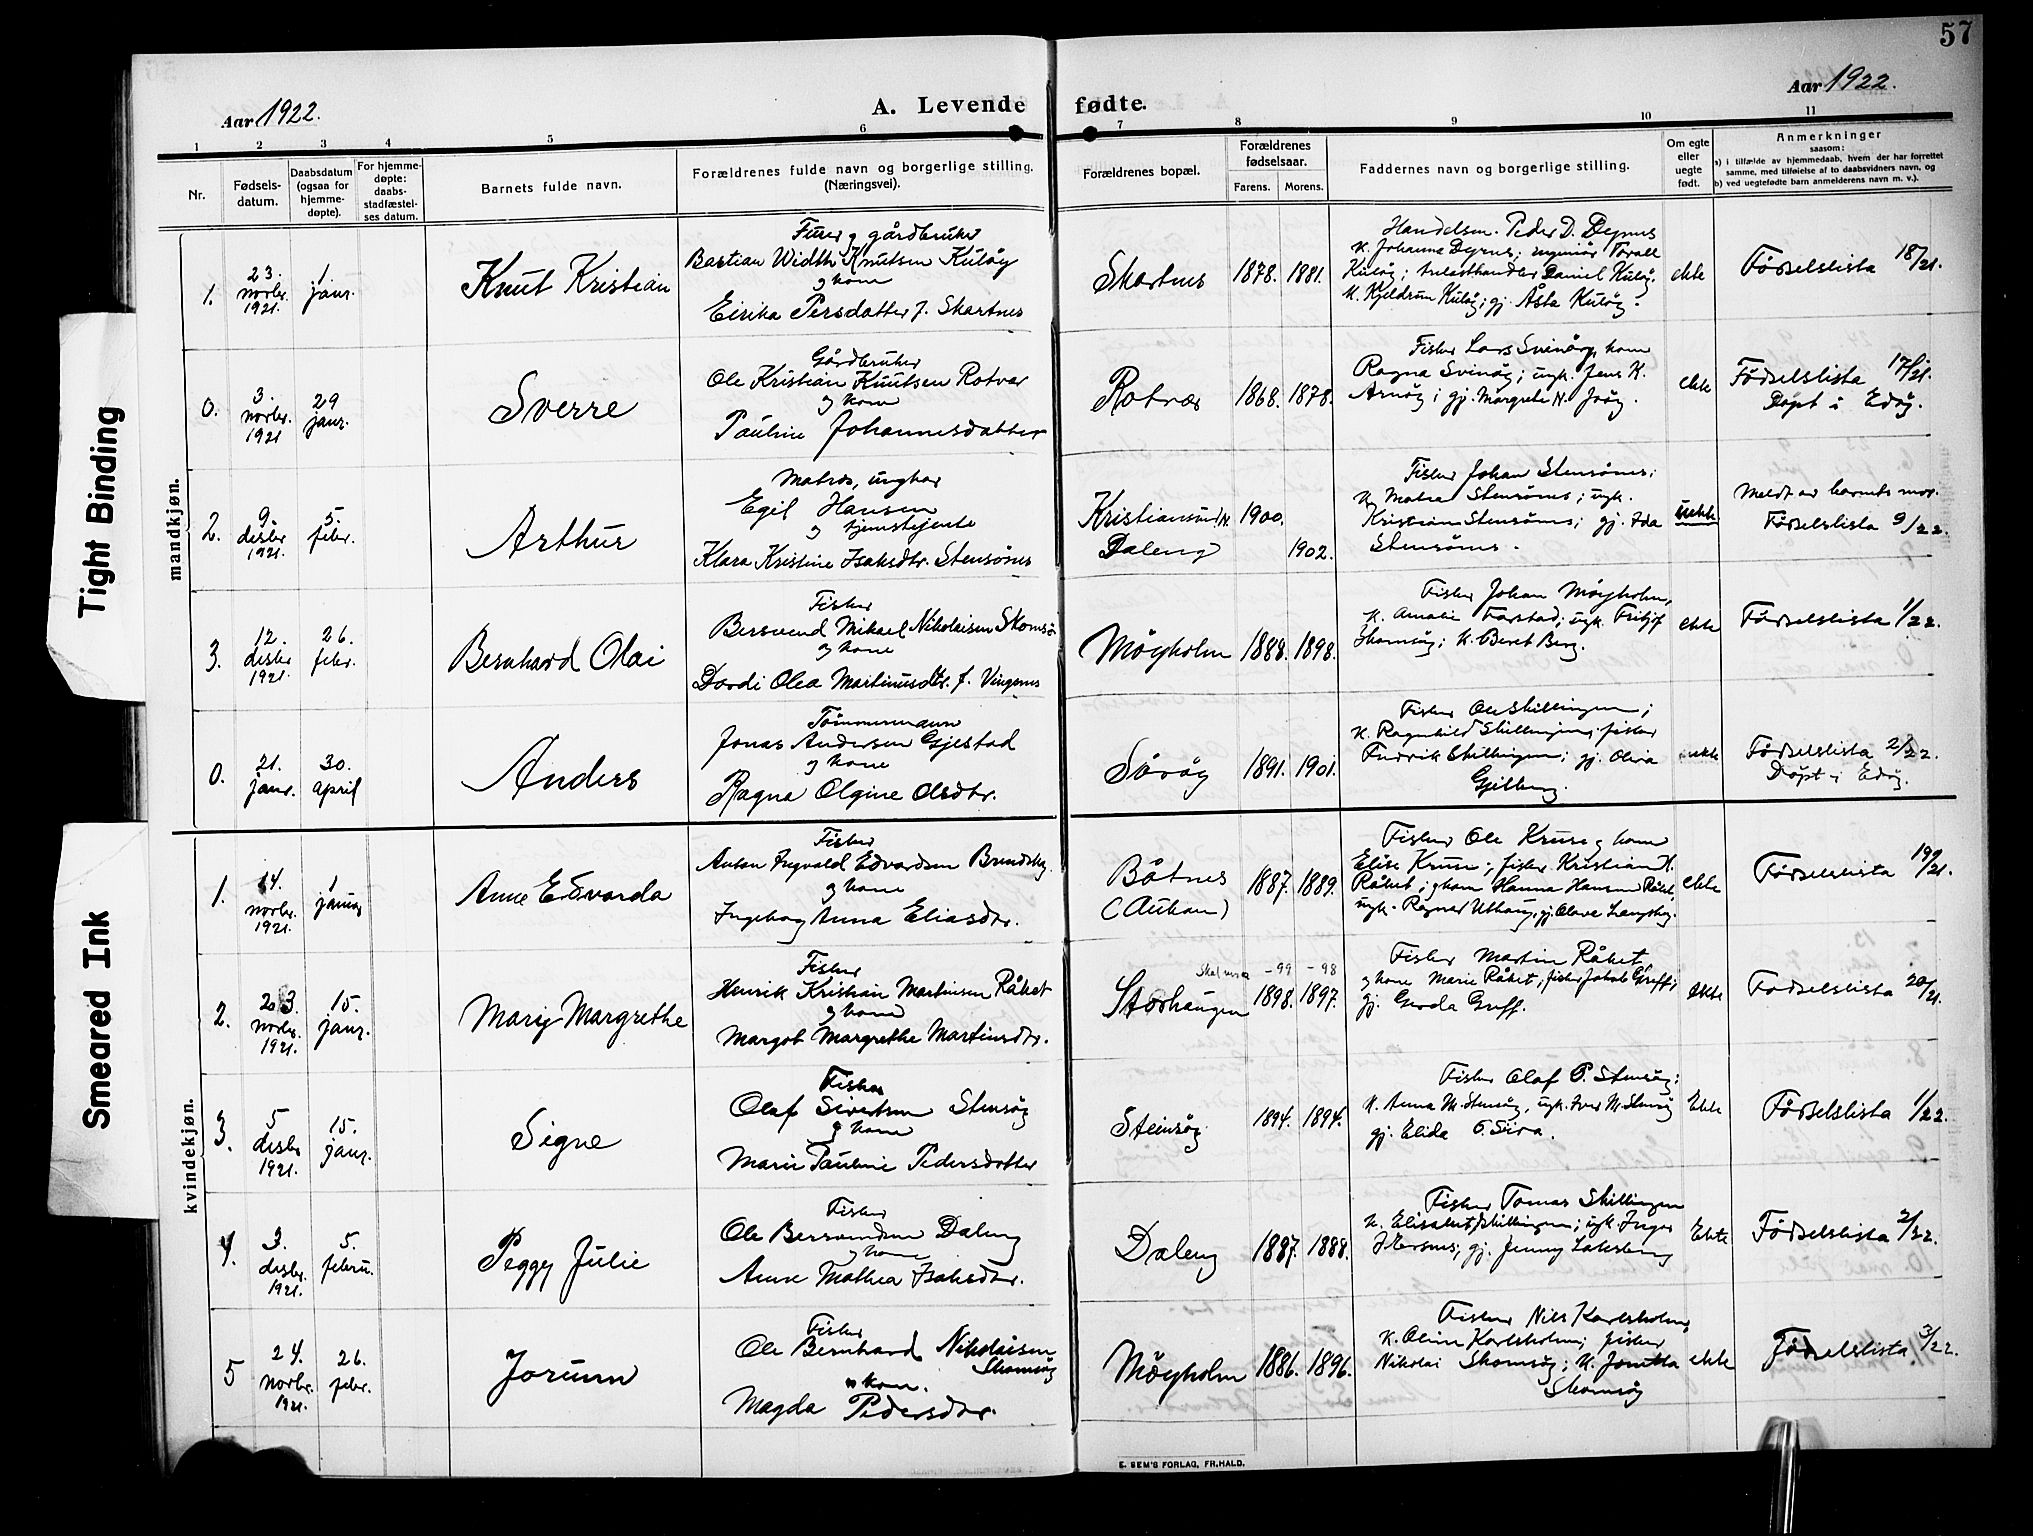 57
Aar 1922.
A. Levende fødte.
Aar 1922.
1 2 3 4 5 6 7 8 9 10 11
Nr.
Fødsels-
datum.
Daabsdatum
(ogsaa for
hjemme-
døpte).
For hjemme-
døpte:
daabs-
stadfæstel-
ses datum.
Barnets fulde navn.
Forældrenes fulde navn og borgerlige stilling.
(Næringsvei).
Forældrenes bopæl.
Forældrenes
fødselsaar.
Farens. Morens.
Faddernes navn og borgerlige stilling.
Om egte
eller
uegte
født.
Anmerkninger
saasom:
a) i tilfælde av hjemmedaab, hvem der har forrettet
samme, med tilføielse av to daabsvidners navn, og
b) ved uegtefødte barn anmelderens navn m. v.).
Tight Binding
Smeared Ink
mandkjøn.
1.
23.
novbr.
1921.
1.
janr.
Knut Kristian
gårdbruker
Bastian Width Knutsen Kuløy
og kone
Eirika Persdatter f. Skartnes
Skartnes
1878. 1881.
Handelsm. Peder D. Dyrnes
k. Johanna Dyrnes; ingeniør
Kuløy; Daniel Kuløy.
Kuløy; gj. Åsta Kuløy.
ekte
Fødselslista 18/21.
0.
3.
novbr.
1921
29
janr.
Sverre
Gårdbruker
Ole Kristian Knutsen Rotvær
og kone
Pauline Johannesdatter
Rotvær
1868. 1878.
Fisker Lars Svinøy, kone
Ragna Svinøy; ungk. Jens K.
Arnøy; gj. Margrete N.
ekte
Fødselslista 17/21.
Døpt i Edøy.
2.
9.
desbr
1921.
5.
febr.
Arthur
Matros, ungkar
Egil Hansen
og tjenestejente
Klara Kristine Isaksdtr. Stensønes
Kristiansund N.
Daleng
1900.
1902.
Fisker Johan Stensønes;
k. Stensønes; ungk.
Kristian Stensønes; gj. Ida
Stensønes.
uekte
Meldt av barnets mor.
Fødselslista 9/22.
3.
12.
desbr
1921.
26.
febr.
Bernhard Olai
Fisker
Bersvend Mikael Nikolaisen Skomsø
og kone
Dordi Olea Martinusdtr. f. Vingenes
Møyholm
1888. 1898.
Fisker Johan Møyholm,
k. Amalie Farstad; ungk. Fritjof
Skomsøy; k. Beret Berg.
ekte
Fødselslista 1/22.
0.
21.
janr.
30.
april
Anders
Tømmermann
Jonas Andersen Gjestad
og kone
Ragna Olgine Olsdtr.
Sørøy
1891. 1901.
Fisker Ole Skillingen;
k. Ragnhild Skillingen; fisker
Fredrik Skillingen; gj. Oliva
ekte
Fødselslista 2/22.
Døpt i Edøy.
kvindekjøn.
1.
14.
novbr.
1921.
1
januar
Anne Edvarda
Fisker
Anton Ingvald Edvardsen
og kone
Ingeborg Anna Eliasdtr.
Båtnes
(Aukan)
1887. 1889.
Fisker Ole Kruse og kone
Elise Kruse; fisker Kristian H.
Råket; og kone Hanna Hansen Råket,
ungk. Ragnar Uthaug, gj. Olava
ekte
Fødselslista 19/21.
2.
23.
novbr.
1921.
15.
janr.
Mary Margrethe
Fisker
Henrik Kristian Martinsen Råket
og kone
Margot Margrethe Martinsdtr.
Storhaugen
Skal være -99 -98
1898. 1897.
Fisker Martin Råket,
og kone Marie Råket, fisker Jakob Greff;
gj. Gerda Greff.
ekte
Fødselslista 20/21.
3.
5
desbr
1921.
15.
janr.
Signe
Fisker
Olaf Sivertsen Stensøy
og kone
Marie Pauline Pedersdatter
Steinsøy
1894. 1894.
Fisker Olaf P. Stensøy:
k. Anna M. Stensøy, ungk. Iver M. Stensøy
gj. Elida O. Seira.
Ekte
Fødselslista 1/22.
4.
3.
desbr.
1921.
5.
februar
Peggy Julie
Fisker
Ole Bersvendsen Daleng
og kone
Anne Mathea Isaksdtr.
Daleng
1887. 1888.
Fisker Tomas Skillingen
k. Elisabet Skillingen; ungk. Inger
gj. Jenny
Ekte
Fødselslista 2/22.
5
24.
novbr.
1921.
26.
febr.
Jorunn
Fisker
Ole Bernhard Nikolaisen
Skomsøy
og kone.
Magda Pedersdtr.
Møyholm
1886. 1896.
Fisker Nils Karlsholm,
k. Oline Karlsholm; fisker
Nikolai Skomsøy; k. Jonetta
Skomsøy
ekte
Fødselslista 3/22.
E. SEM'S FORLAG, FR.HALD.